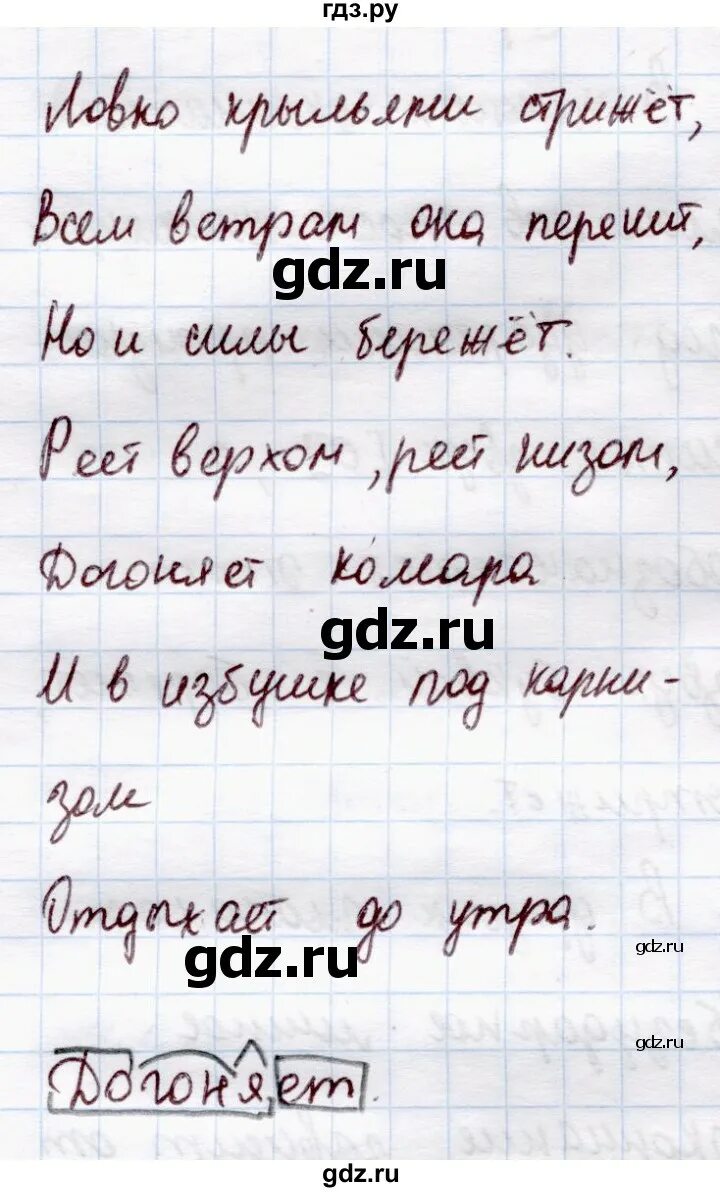 гдз.ру
Ловко крыльями стрижёт,
Всем ветрам она перечит,
gdz.ru
Но и силы бережёт.
Реет верхом, реет низом,
Догоняет комара
gdz.ru
И в избушке под карни-
зом
Отдыхает до утра.
gdz.ru
gdz.ru
gdz.ru
Догоняет.
gdz.ru